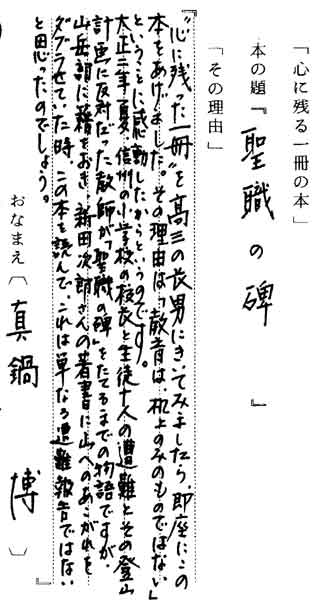 「心に残る一冊の本」
本の題『聖職の碑』
「その理由」
『"心に残った一冊"を高三の長男にきいてみましたら、即座にこの
本をあげました。その理由は「教育は、机上のみのものではない」
ということに感動したからというのです。
大正二年夏、信州の小学校の校長と生徒十人の遭難とその登山
計画に反対だった教師が「聖職の碑」をたてるまでの物語ですが、
山岳部に籍をおき、新田次郎さんの著書に山へのあこがれを
ダブらせていた時、この本を読んで、これは単なる遭難報告ではない
と思ったのでしょう。』
おなまえ〔真鍋 博〕